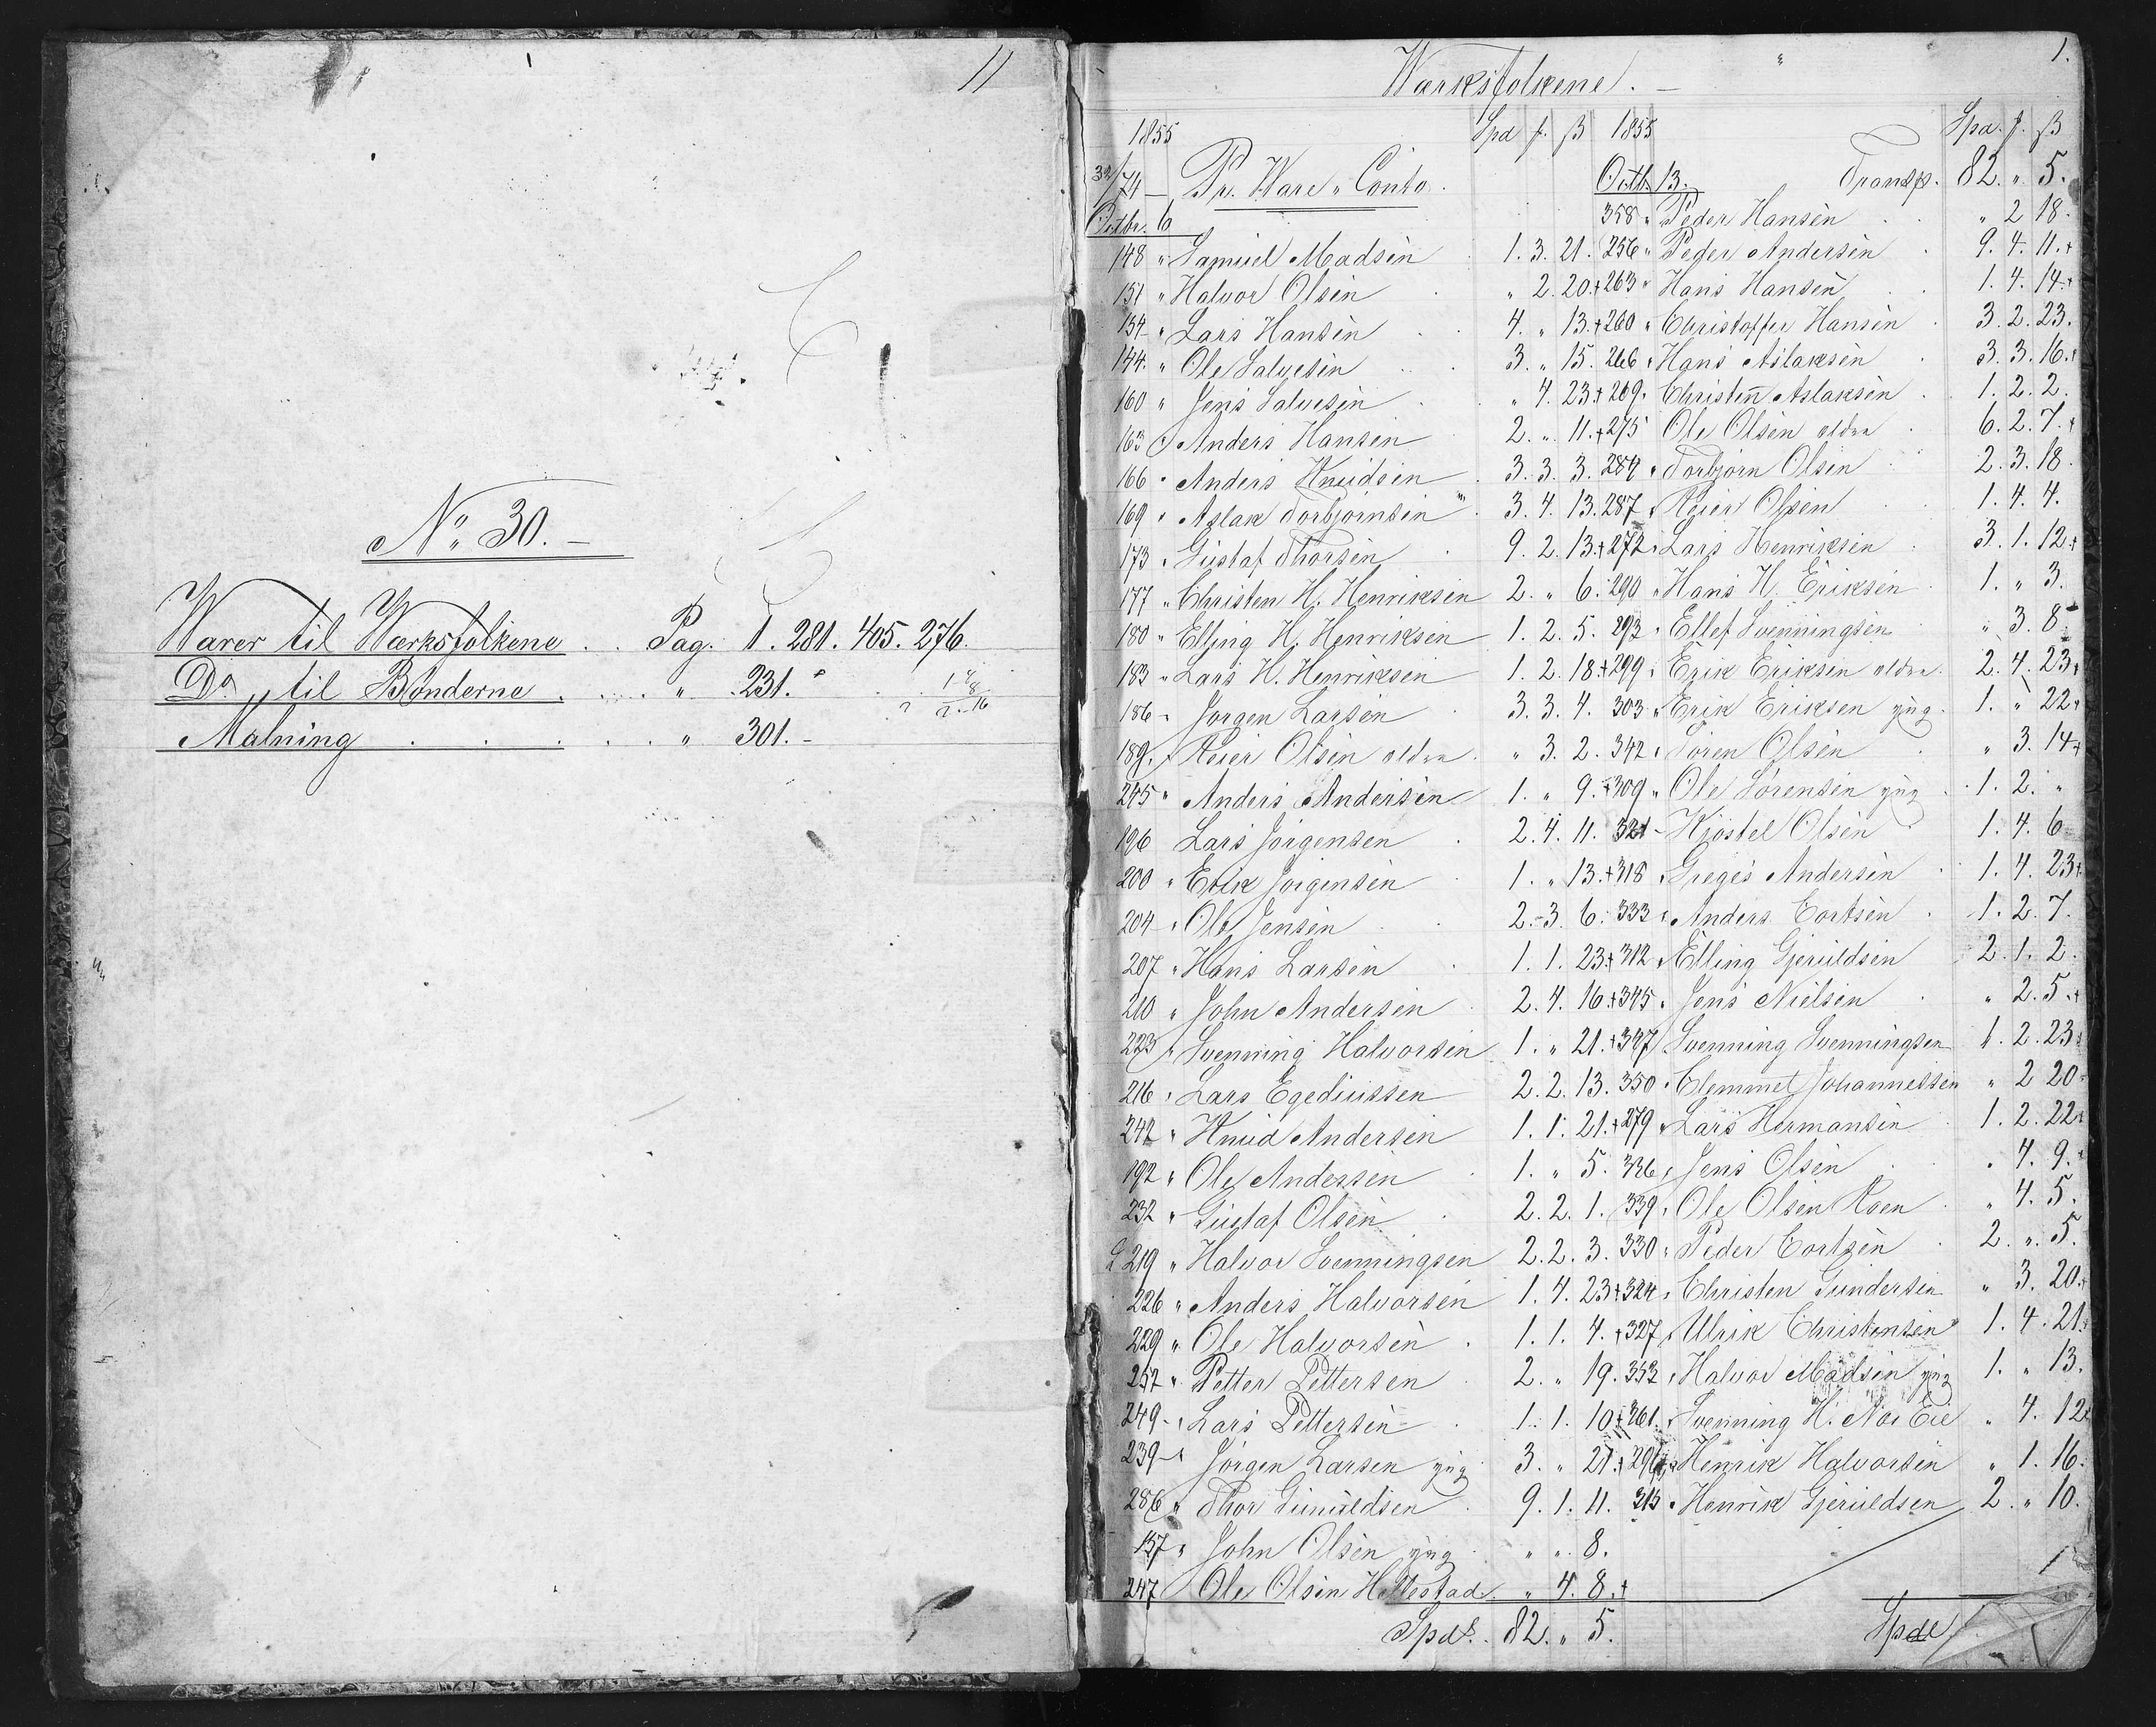 11
No 30. -
Warer til Værksfolkene . . Pag. 1. 281. 405. 276.
Do " til Bønderne . . . . " 231.
Malning . . . . . . " 301. -
1.
Værksfolkene. -
1855 Spd f. ß
Pr. Ware " Conto.
Octbr. 6
148 " Samuel Madsen 1. 3. 21.
151 " Halvor Olsen " 2. 20. +
154 " Lars Hansen 4. " 13. +
144 " Ole Salvesen 3. " 15.
160 " Jens Salvesen " 4. 23. +
163 " Anders Hansen 2. " 11. +
166 " Anders Knudsen 3. 3. 3.
169 " Aslak Torbjørnsen 3. 4. 13.
173 " Gustaf Thorsen 9. 2. 13. +
177 " Christen H. Henriksen 2. " 6.
180 " Elling H. Henriksen 1. 2. 5.
183 " Lars H. Henriksen 1. 2. 18. +
186 " Jørgen Larsen 3. 3. 4.
189 " Reier Olsen ældre " 3. 2.
245 " Anders Andersen 1. " 9. +
196 Lars Jørgensen 2. 4. 11.
200 " Erik Jørgensen 1. " 13. +
204 " Ole Jensen 2. 3. 6.
207 " Hans Larsen 1. 1. 23. +
210 " John Andersen 2. 4. 16. +
223 " Svenning Halvorsen 1. " 21. +
216 " Lars Egediussen 2. 2. 13.
242 " Knud Andersen 1. 1. 21. +
192 " Ole Andersen 1. " 5.
232 " Gustaf Olsen 2. 2. 1.
219 " Halvor Svenningsen 2. 2. 3.
226 " Anders Halvorsen 1. 4. 23 +
229 " Ole Halvorsen 1. 1. 4. +
252 " Petter Pettersen 2. " 19.
249 - " Lars Pettersen 1. 1. 10 +
239 - " Jørgen Larsen yng 3. " 21. +
286 " Thor Gunuldsen 9. 1. 11.
157 " John Olsen yng " " 8.
247 Ole Olsen Hellestad " 4. 8. +
Spd. 82. " 5.
1855 Spd. f. ß
Octb. 13. Transp. 82. " 5.
358 " Peder Hansen " 2 18.
256 " Peder Andersen 9. 4. 11. +
263 " Hans Hansen 1. 4. 14. +
260 " Christoffer Hansen 3. 2. 23.
266 " Hans Aslaksen 3. 3. 16. +
269 " Christen Aslaksen 1. 2. 2.
275 Ole Olsen ældre 6. 2. 7. +
284 " Torbjørn Olsen 2. 3. 18.
287 " Reier Olsen 1. 4. 4.
272 " Lars Henriksen 3. 1. 12 +
290 " Hans H. Eriksen 1. " 3.
293 " Ellef Svenningsen " 3. 8
299 " Erik Eriksen ældre 2. 4. 23 +
303 " Erik Eriksen yng. 1. " 22 +
342 " Søren Olsen " 3. 14 +
309 " Ole Sørensen yng 1. 2. "
321 - Kjøstel Olsen 1. 4. 6
318 " Greges Andersen 1. 4. 23 +
333 " Anders Eortsen 1. 2. 7.
312 " Elling Gjeruldsen 2. 1. 2.
345 " Jens Nielsen " 2. 5. +
347 Svenning Svenningsen 1. 2. 23
350 " Clemmet Johannessen " 2 20
279 " Lars Hermansen 1. 2. 22 +
336 " Jens Olsen " 4. 9. +
339 " Ole Olsen Roen " 4. 5.
330 " Peder Eortsen 2. " 5.
324 " Christen Gundersen " 3. 20. +
327 " Ulrik Christensen 1. 4. 21. +
353 " Halvor Madsen yng 1. " 13.
361. Svenning H. Næs Eie " 4. 12 +
296 " Henrik Halvorsen " 1. 16.
315 " Henrik Gjeruldsen 2. " 10.
Spd